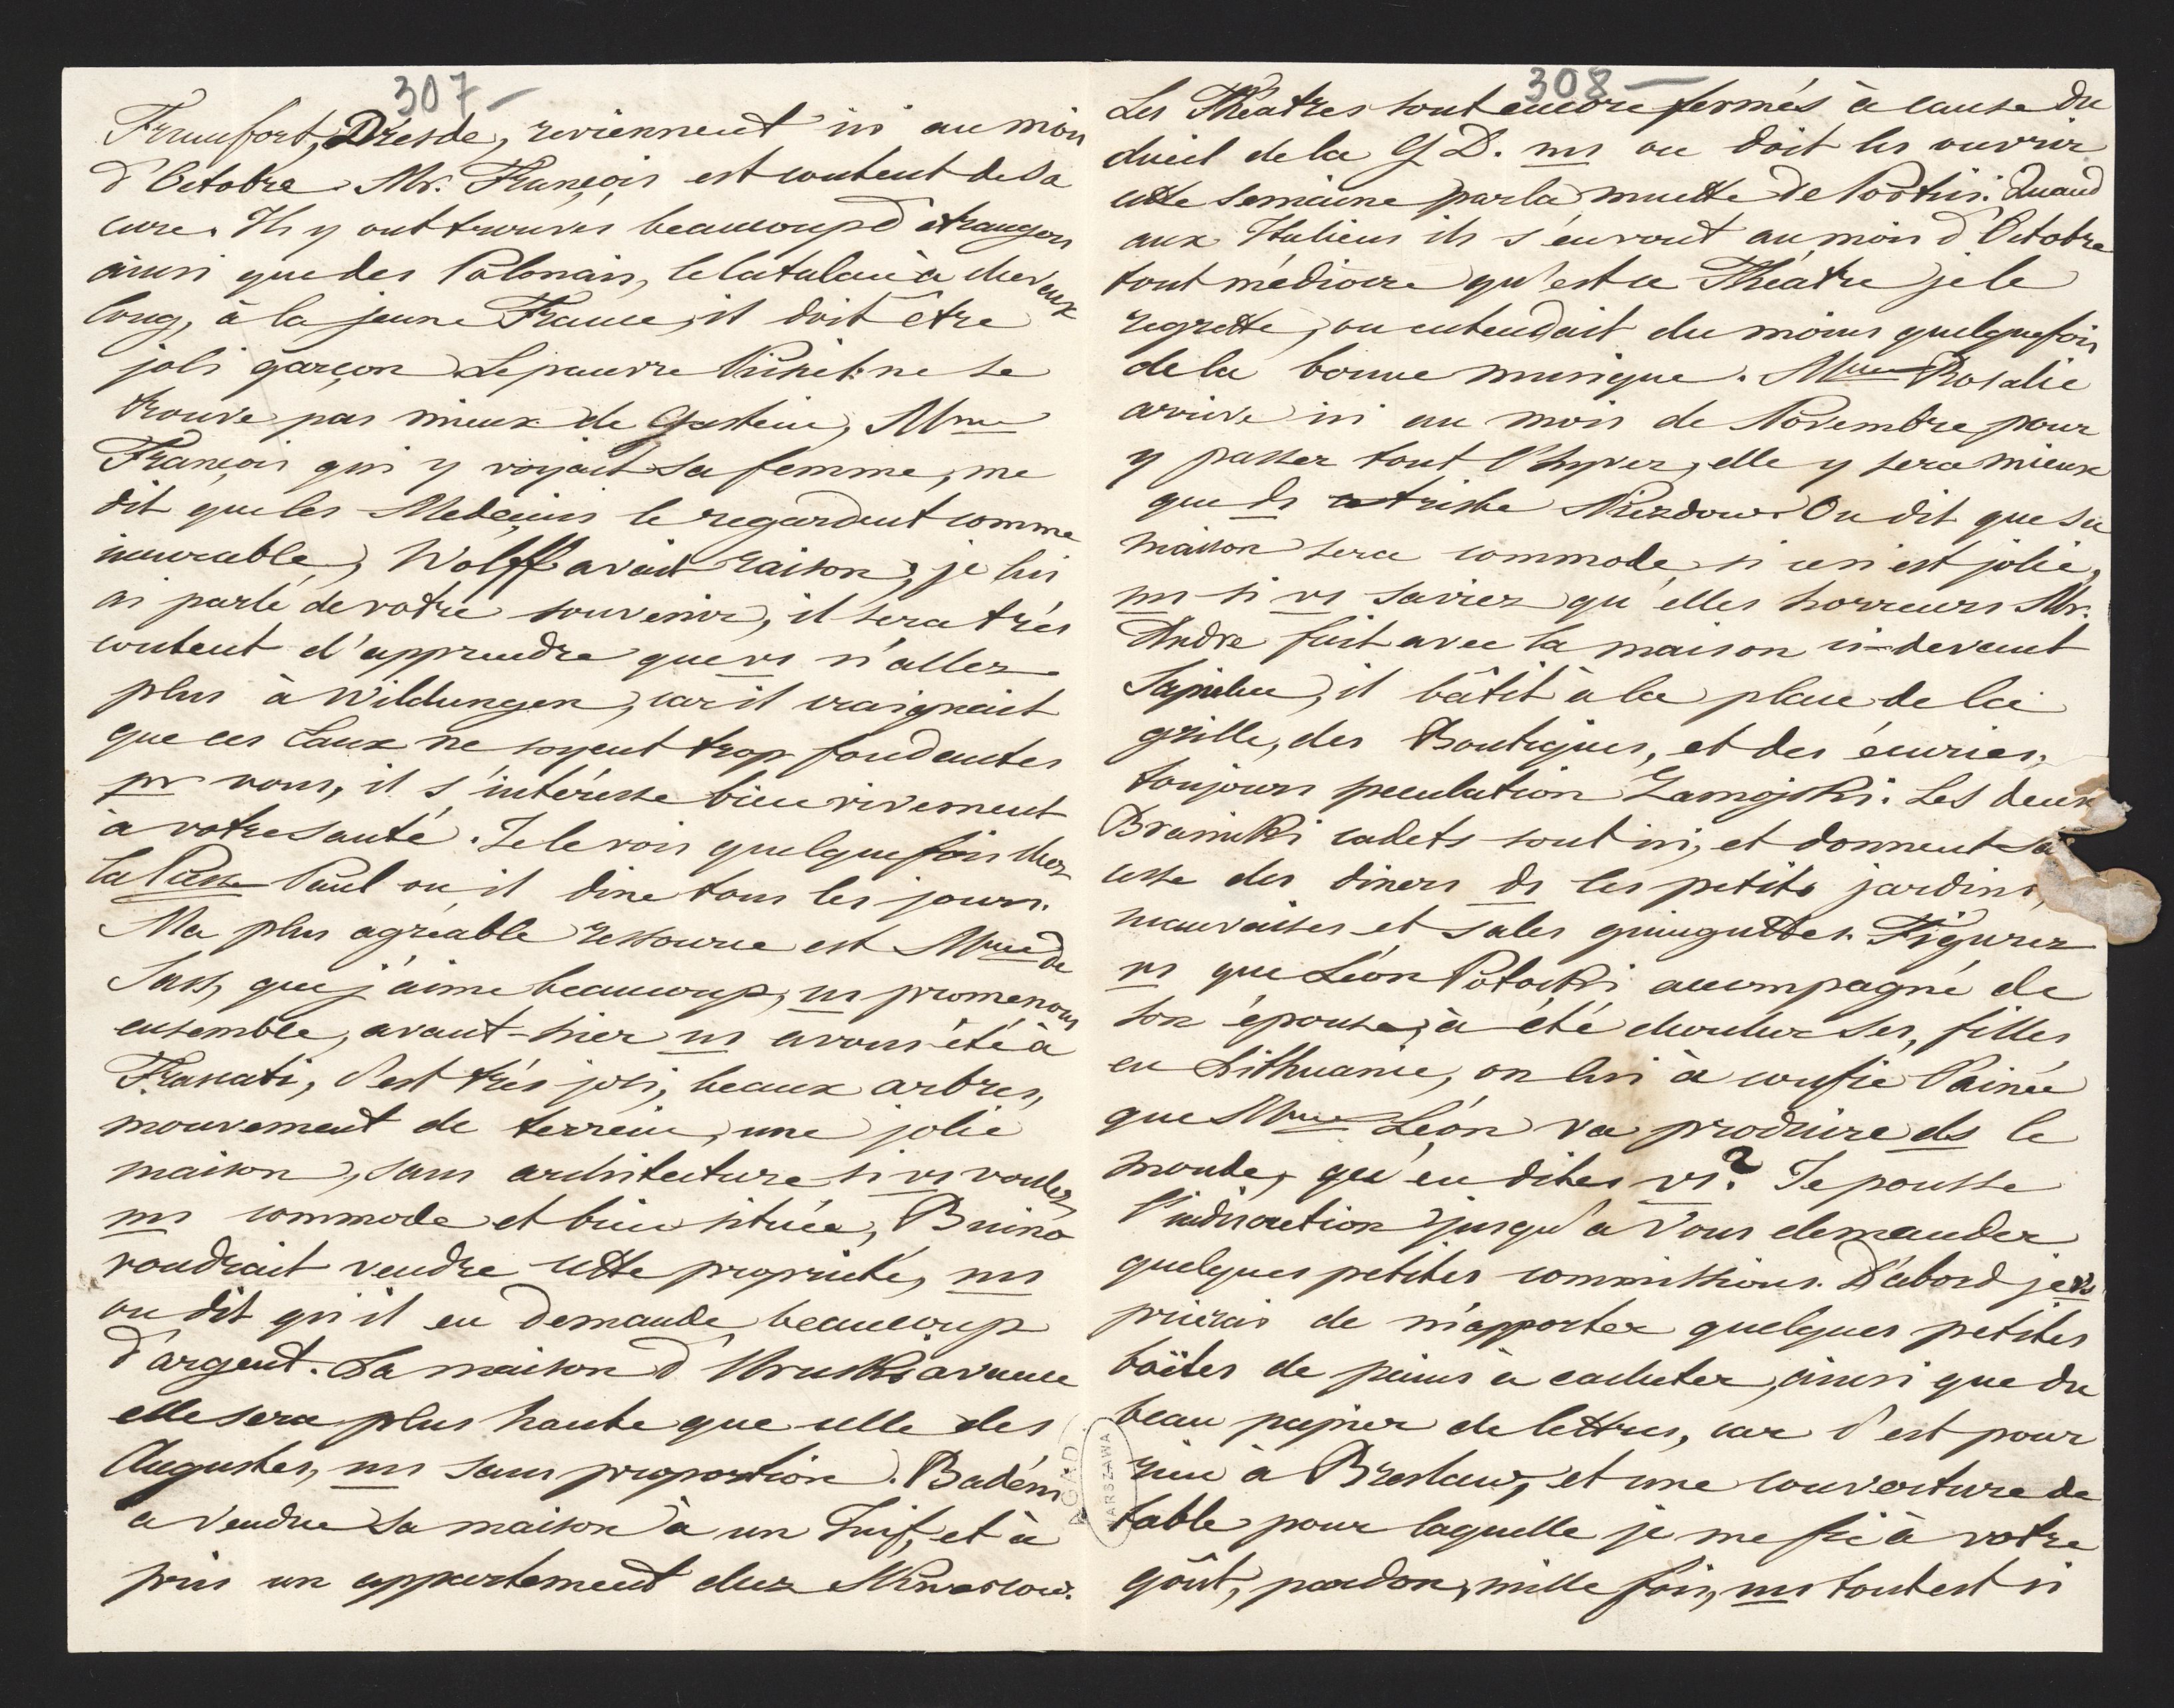 307 -
Francfort, Dresde, reviennent ici au mois
d'Octobre. Mr. François est content de sa
cure. Ils y ont trouvés beaucoup d'étrangers
ainsi que des Polonais, le à cheveux
long, à la jeune France, il doit être
joli garçon. Le pauvre ne se
trouve pas mieux de Gastein, Mme
François qui y voyait sa femme, me
dit que les Medeçins le regardent comme
incurable, Wolff avait raison, je lui
ai parlé de votre souvenir, il sera très
content d'apprendre que vs n'allez
plus à Wildungen, car il craignait
que ces Eaux ne soyent trop fondantes
pr vous, il s'intéresse bien vivement
à votre santé. Je le vois quelque fois chez
la Psse Paul ou il dine tous les jours.
Ma plus agréable ressource est Mme de
Sass, que j'aime beaucoup, ns promenons
ensemble, avant-hier ns avons été à
Frascati, c'est très joli, beaux arbres,
mouvement de terrein, une jolie
maison, sans architecture si vs voulez
ms commode et bien située, Bnino
voudrait vendre cette propriété, ms
on dit qu'il en demande beaucoup
d'argent. La maison d'Uruski avance
elle sera plus haute que celle des
Augustes, ms sans proportion. Badéni
a vendu sa maison à un Juif, et à
pris un appartement chez Skwarcow.
308 -
Les Théatres sont encore fermés à cause du
dueil de la G D. ms on doit les ouvrir
cette semaine par la muette de Portici. Quand
aux Italiens ils s'en vont au mois d'Octobre
tout médiocre qu'est ce Théatre je le
regrette, on entendait du moins quelquefois
de la bonne musique. Mme Rosalie
arrive ici au mois de Novembre pour
y passer tout l'hyver, elle y sera mieux
que ds ce triste Niezdow. On dit que sa
maison sera commode, si ceci est jolie,
ms si vs saviez qu'elles horreurs Mr.
André fait avec la maison ci-devant
Sapieha, il bâtit à la place de la
grille, des Boutiques, et des écuries,
toujours speculation Zamojski. Les deux
Branicki cadets sont ici, et donnent sa
cesse des diners ds les petits jardins,
mauvaises et sales guinguettes. Figurez
vs que Léon Potocki accompagné de
son épouse, à été chercher ses filles
en Lithuanie, on lui à confie l'ainée
que Mme Léon va produire ds le
monde, qu'en dites vs? Je pousse
l'indiscretion jusqu'a vous demander
quelques petites commissions. D'abord je vs
prierais de m'apporter quelques petites
boîtes de pains à cacheter, ainsi que du
beau papier de lettres, car c'est pour
rien à Breslaw, et une couverture de
table pour laquelle je me fie à votre
goût, pardon, mille fois, ms tout est si
AGAD
WARSZAWA